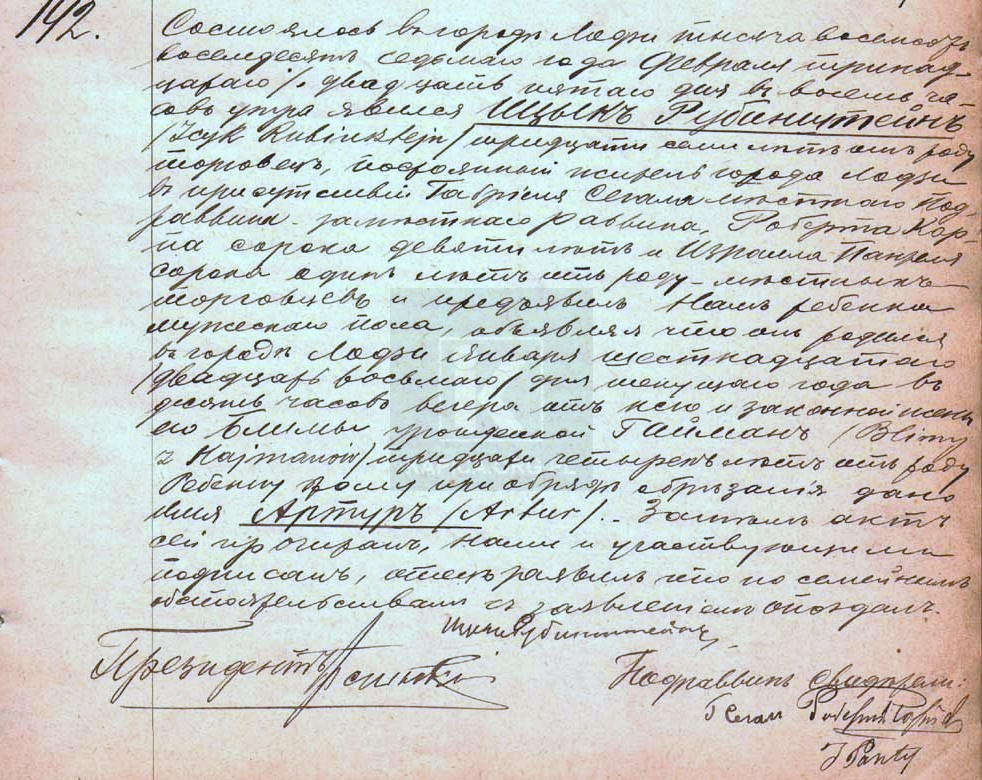 142.
Состоялось въ городѣ Лодзи тысяча восемьсотъ
восемдесятъ седьмаго года Февраля тринад-
цатаго /. двадцать пятаго дня въ восемь ча-
совъ утра явился Ицыкъ Рубинштейнъ
/Icyk Rubinsztejn/ тридцати семи лѣтъ отъ роду
торговецъ, постоянный житель города Лодзи
въ присутствіи Габріеля Сегала мѣстнаго Под-
раввина - замѣстнаго раввина, Роберта Кор-
на сорока девяти лѣтъ и Израиля
сорока одинъ лѣтъ отъ роду - мѣстныхъ
торговцевъ и предъявилъ Намъ ребенка
мужескаго пола, объявляя что онъ родился
въ городѣ Лодзи Января шестнадцатаго
/двадцать восьмаго/ дня текущаго года въ
десять часовъ вечера отъ него и законной жены
его Блимы урожденной Гайманъ /Blimy
z Hajmanów/ тридцати четырехъ лѣтъ отъ роду
Ребенку тому при обрядѣ обрѣзанія дано
имя Артуръ /Artur/. - Затѣмъ актъ
сей прочитанъ, нами и участвующими
подписанъ, отецъ заявилъ что по семейнымъ
обстоятельствамъ съ заявленіемъ опоздалъ.
Рубинштейнъ
Президентъ
Подраввинъ Свидѣтели:
Г Сегал